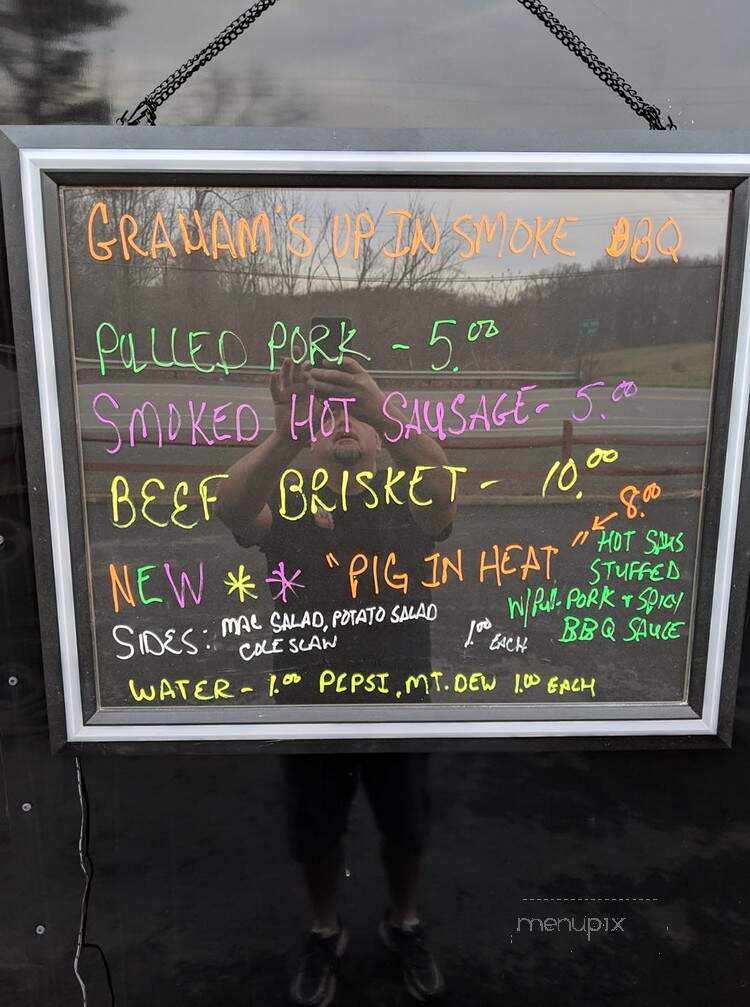 GRAHAM'S UP IN SMOKE BBQ
PULLED PORK - 5.00
SMOKED HOT SAUSAGE - 5.00
BEEF BRISKET - 10.00
NEW ** "PIG IN HEAT" 8.00
HOT SAUS
STUFFED
W/PULL-PORK + SPICY
BBQ SAUCE
SIDES: MAC SALAD, POTATO SALAD
COLE SLAW 1.00 EACH
WATER - 1.00 PEPSI, MT. DEW 1.00 EACH
menupix